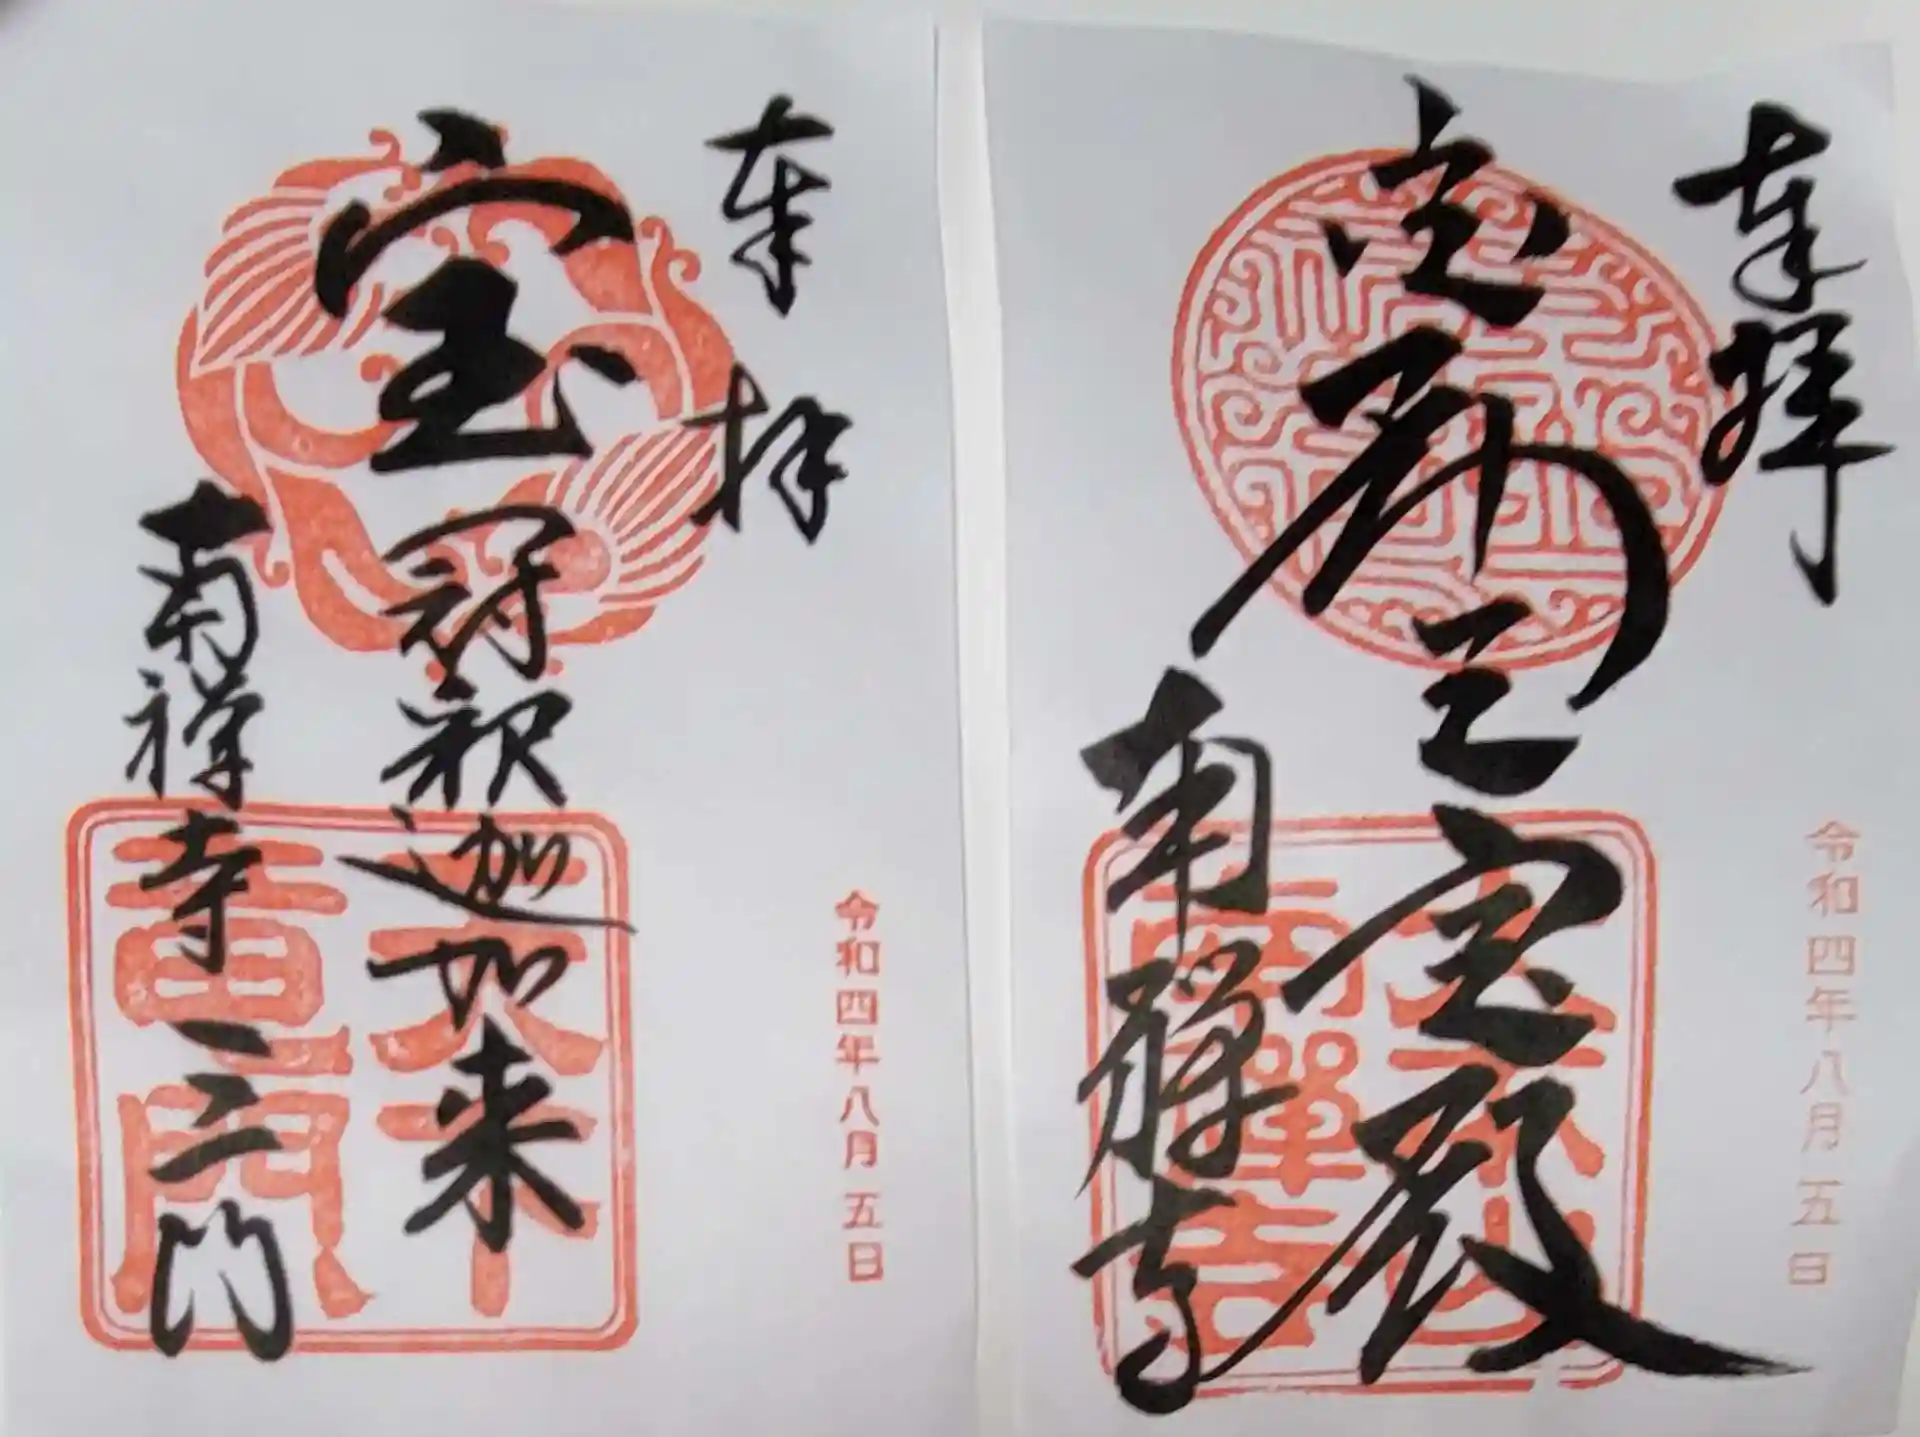 奉拝
金剛王宝殿
南禅寺
令和四年八月五日
奉拝
宝冠釈迦如来
南禅寺三門
令和四年八月五日